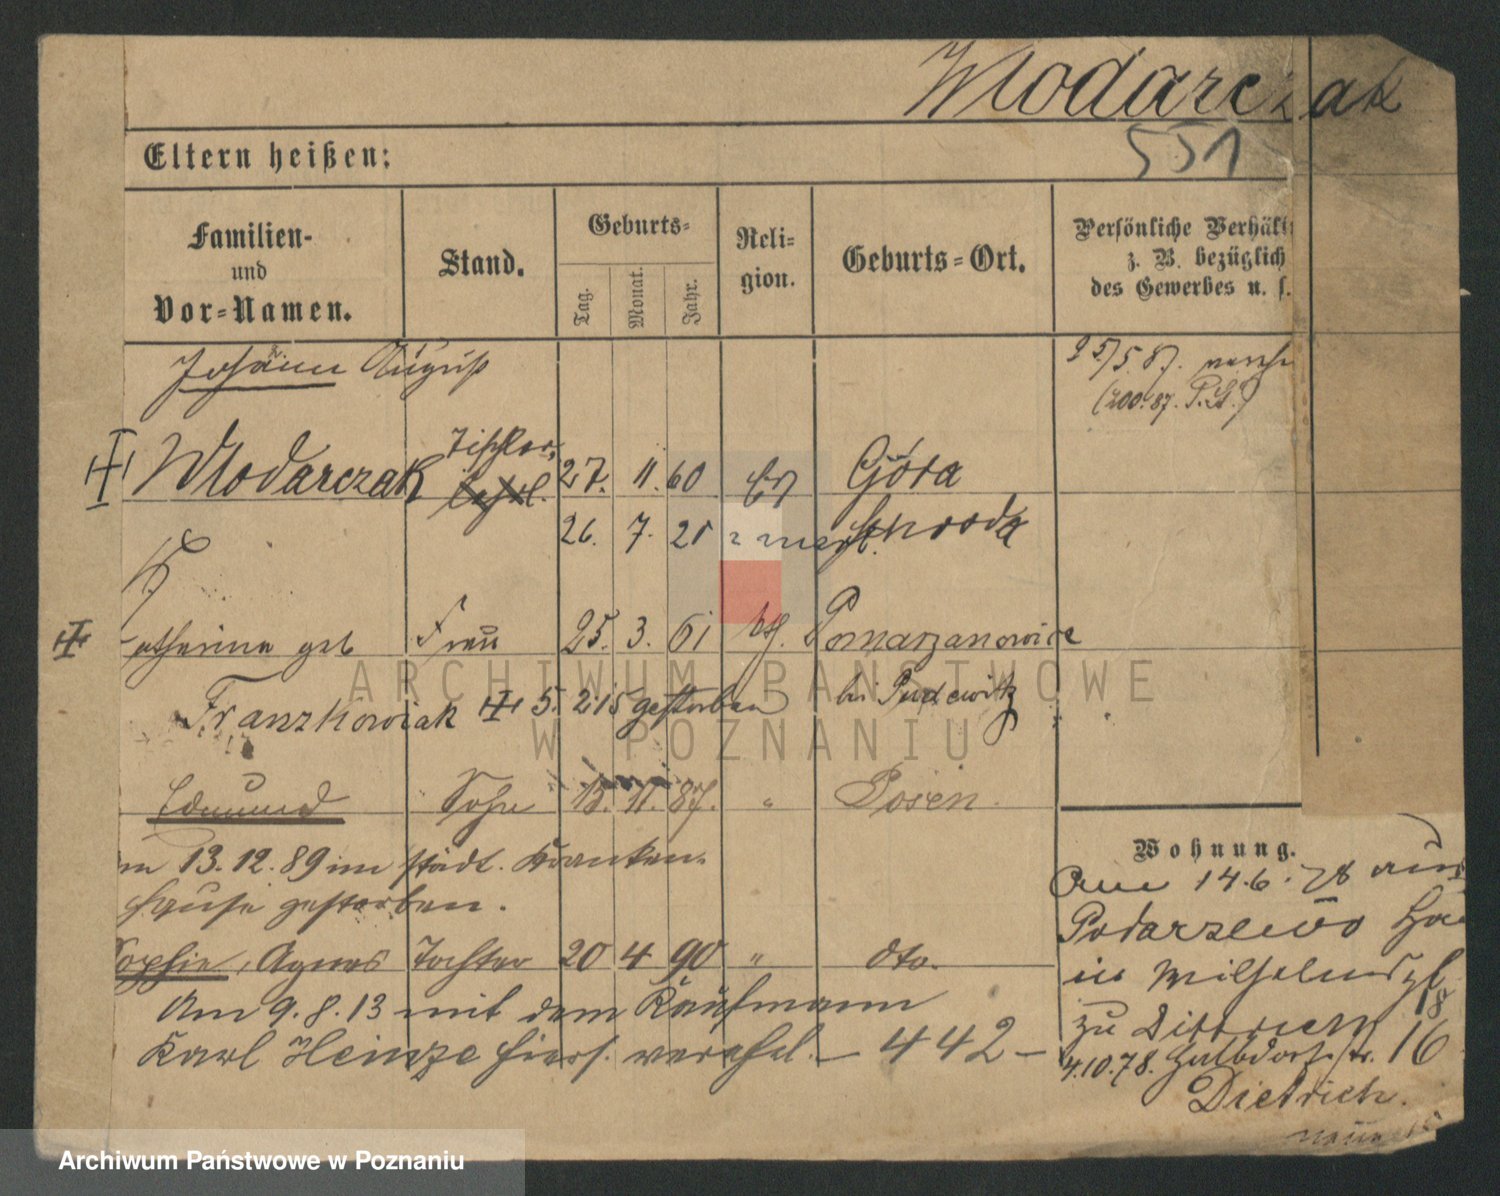 Wlodarczak
551
Eltern heißen:
Familien-
und
Vor-Namen.
Stand.
Geburts-
Tag.
Monat.
Jahr.
Reli-
gion.
Geburts-Ort.
Persönliche Verhält
z. B. bezüglich
des Gewerbes u. s.
Johann August
25/5.87.
(200.87. P.S.)
Wlodarczak Tischler, 27. 11. 60 Góra
26. 7. 21 Schroda
atharina geb Frau 25. 3. 61 kth. Pomarzanowice
Franzkowiak 5. 2 15 gestorben bei Pudewitz
Edmund Sohn 13. 11. 87. " Posen.
m 13.12.89 im städt. Kranken-
hause gestorben.
Sophie, Agnes Tochter 20 4 90 " dto.
Am 9.8.13 mit dem Kaufmann
Karl Heinze hiers. verehel. — 442 —
Wohnung.
Am 14.6.78 aus
Podarzewo
in Wilhelmspl
18
zu Dittrich
4.10.78. Halbdorfstr. 16
Dietrich.
ARCHIWUM PAŃSTWOWE
W POZNANIU
Archiwum Państwowe w Poznaniu